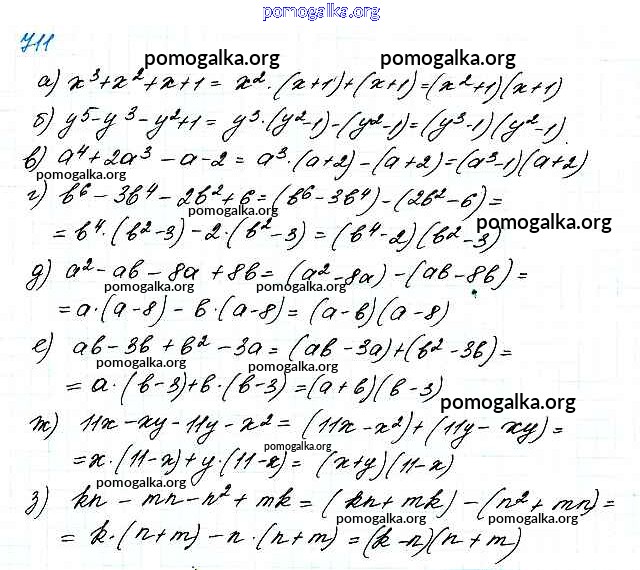 pomogalka.org
711
pomogalka.org pomogalka.org
а) x³+x²+x+1= x²·(x+1)+(x+1)=(x²+1)(x+1)
б) y⁵-y³-y²+1= y³·(y²-1)-(y²-1)=(y³-1)(y²-1)
в) a⁴+2a³-a-2= a³·(a+2)-(a+2)=(a³-1)(a+2)
pomogalka.org
г) b⁶-3b⁴-2b²+6=(b⁶-3b⁴)-(2b²-6)=
pomogalka.org pomogalka.org
= b⁴·(b²-3)-2·(b²-3)=(b⁴-2)(b²-3)
д) a²-ab-8a+8b=(a²-8a)-(ab-8b)=
pomogalka.org pomogalka.org
=a·(a-8)-b·(a-8)=(a-b)(a-8)
е) ab-3b+b²-3a=(ab-3a)+(b²-3b)=
pomogalka.org pomogalka.org
=a·(b-3)+b·(b-3)=(a+b)(b-3)
pomogalka.org
ж) 11x-xy-11y-x²=(11x-x²)+(11y-xy)=
pomogalka.org
=x·(11-x)+y·(11-x)=(x+y)(11-x)
з) kn-mn-n²+mk=(kn+mk)-(n²+mn)=
pomogalka.org pomogalka.org
=k·(n+m)-n·(n+m)=(k-n)(n+m)